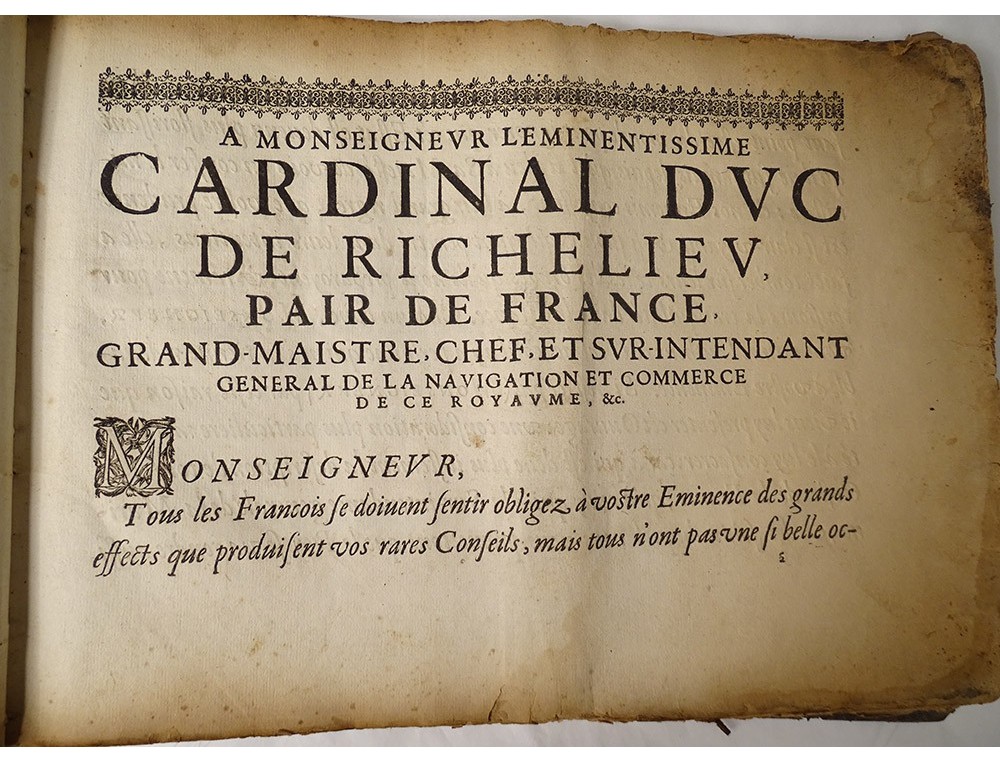 A MONSEIGNEVR L'EMINENTISSIME
CARDINAL DVC
DE RICHELIEV,
PAIR DE FRANCE,
GRAND-MAISTRE, CHEF, ET SVR-INTENDANT
GENERAL DE LA NAVIGATION ET COMMERCE
DE CE ROYAVME, &c.
MONSEIGNEVR,
Tous les Francois ſe doiuent ſentir obligez à vostre Eminence des grands
effects que produiſent vos rares Conſeils, mais tous n'ont pas vne ſi belle oc-